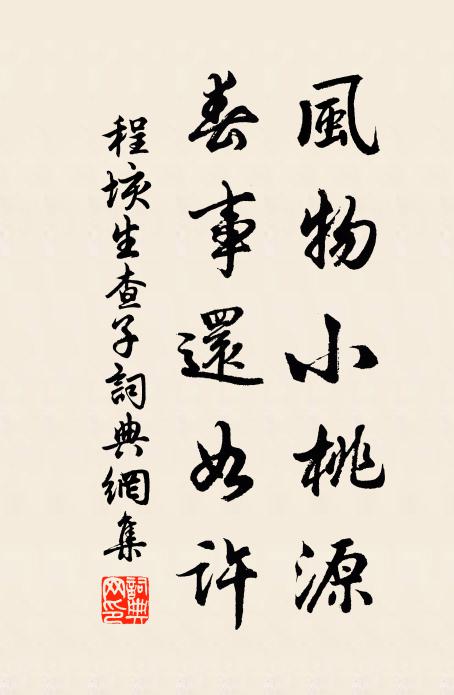 風物小桃源
春事還如許
程垓生查子詞典網集
詞典網印